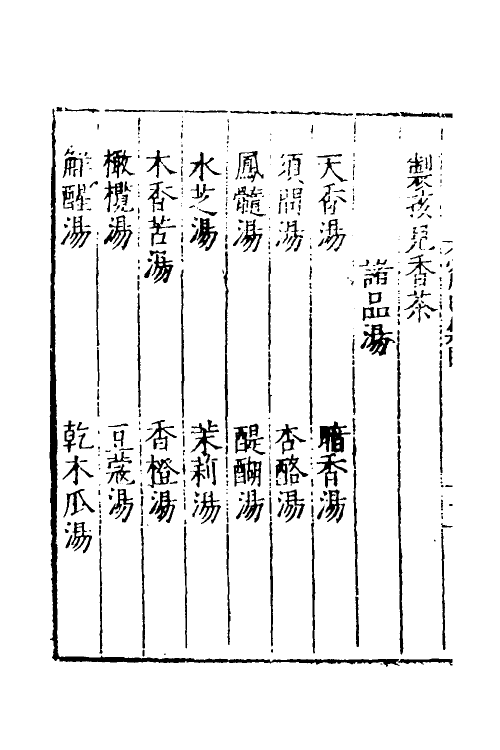 製孩兒香茶
諸品湯
天香湯 暗香湯
須問湯 杏酪湯
鳳髓湯 醍醐湯
水芝湯 茉莉湯
木香苦湯 香橙湯
橄欖湯 豆蔻湯
解醒湯 乾木瓜湯